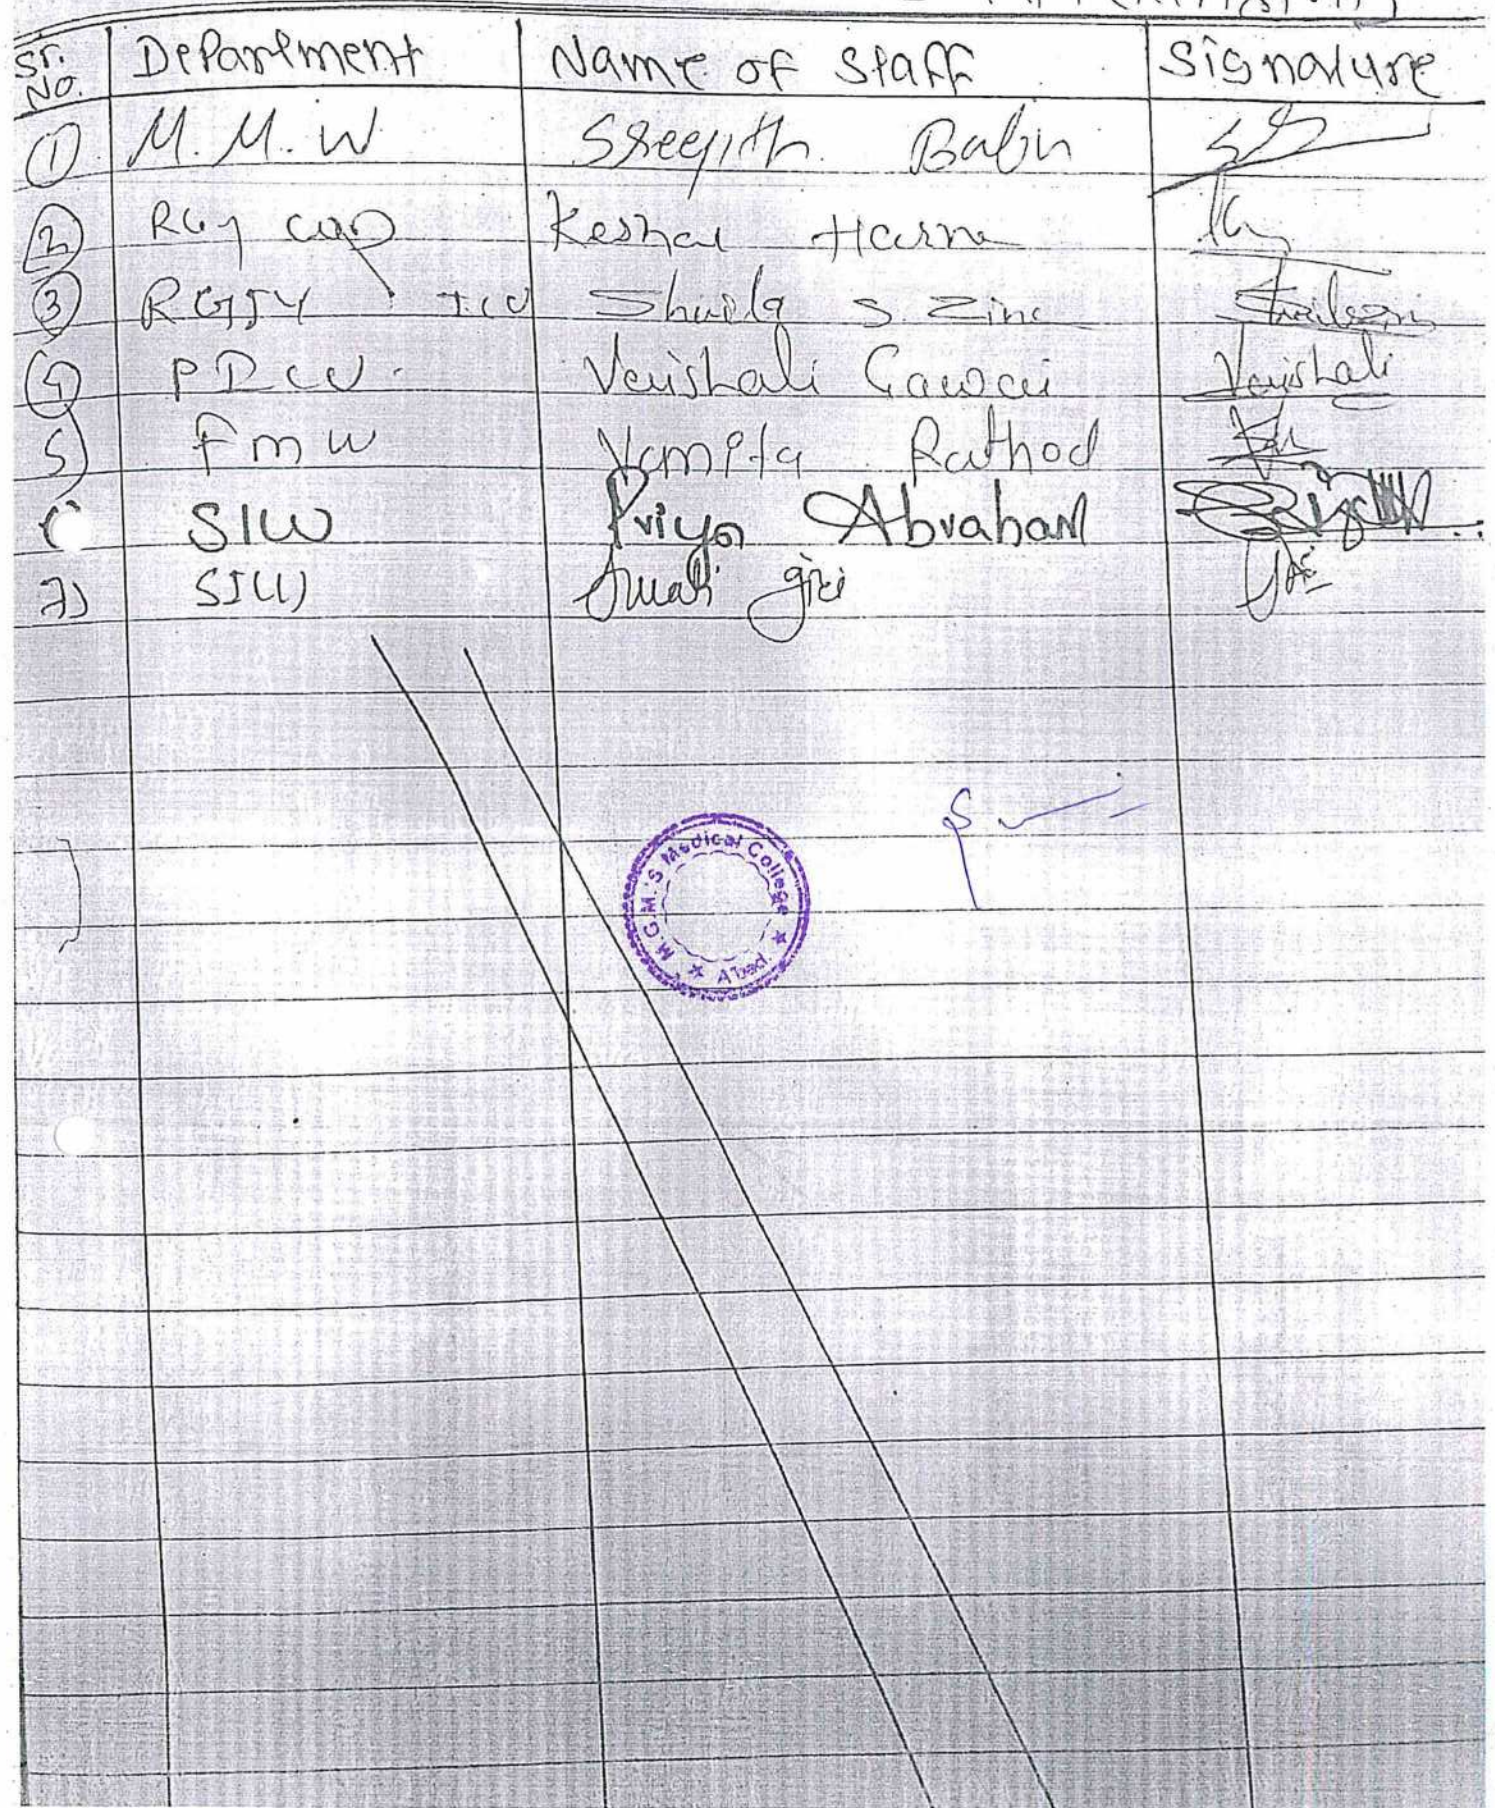 Sr. No. Department Name of Staff Signature
① M. M. W Sreejith Babu
② Keshav Harne
③ RGJY ICU Shaila S. Zine
④ PDCW. Vaishali Gawai Vaishali
5) Fmw Namita Rathod
SIW Priya Abraham
7) SIW Swati giri
M.G.M.'S Medical College
★ A'bad ★